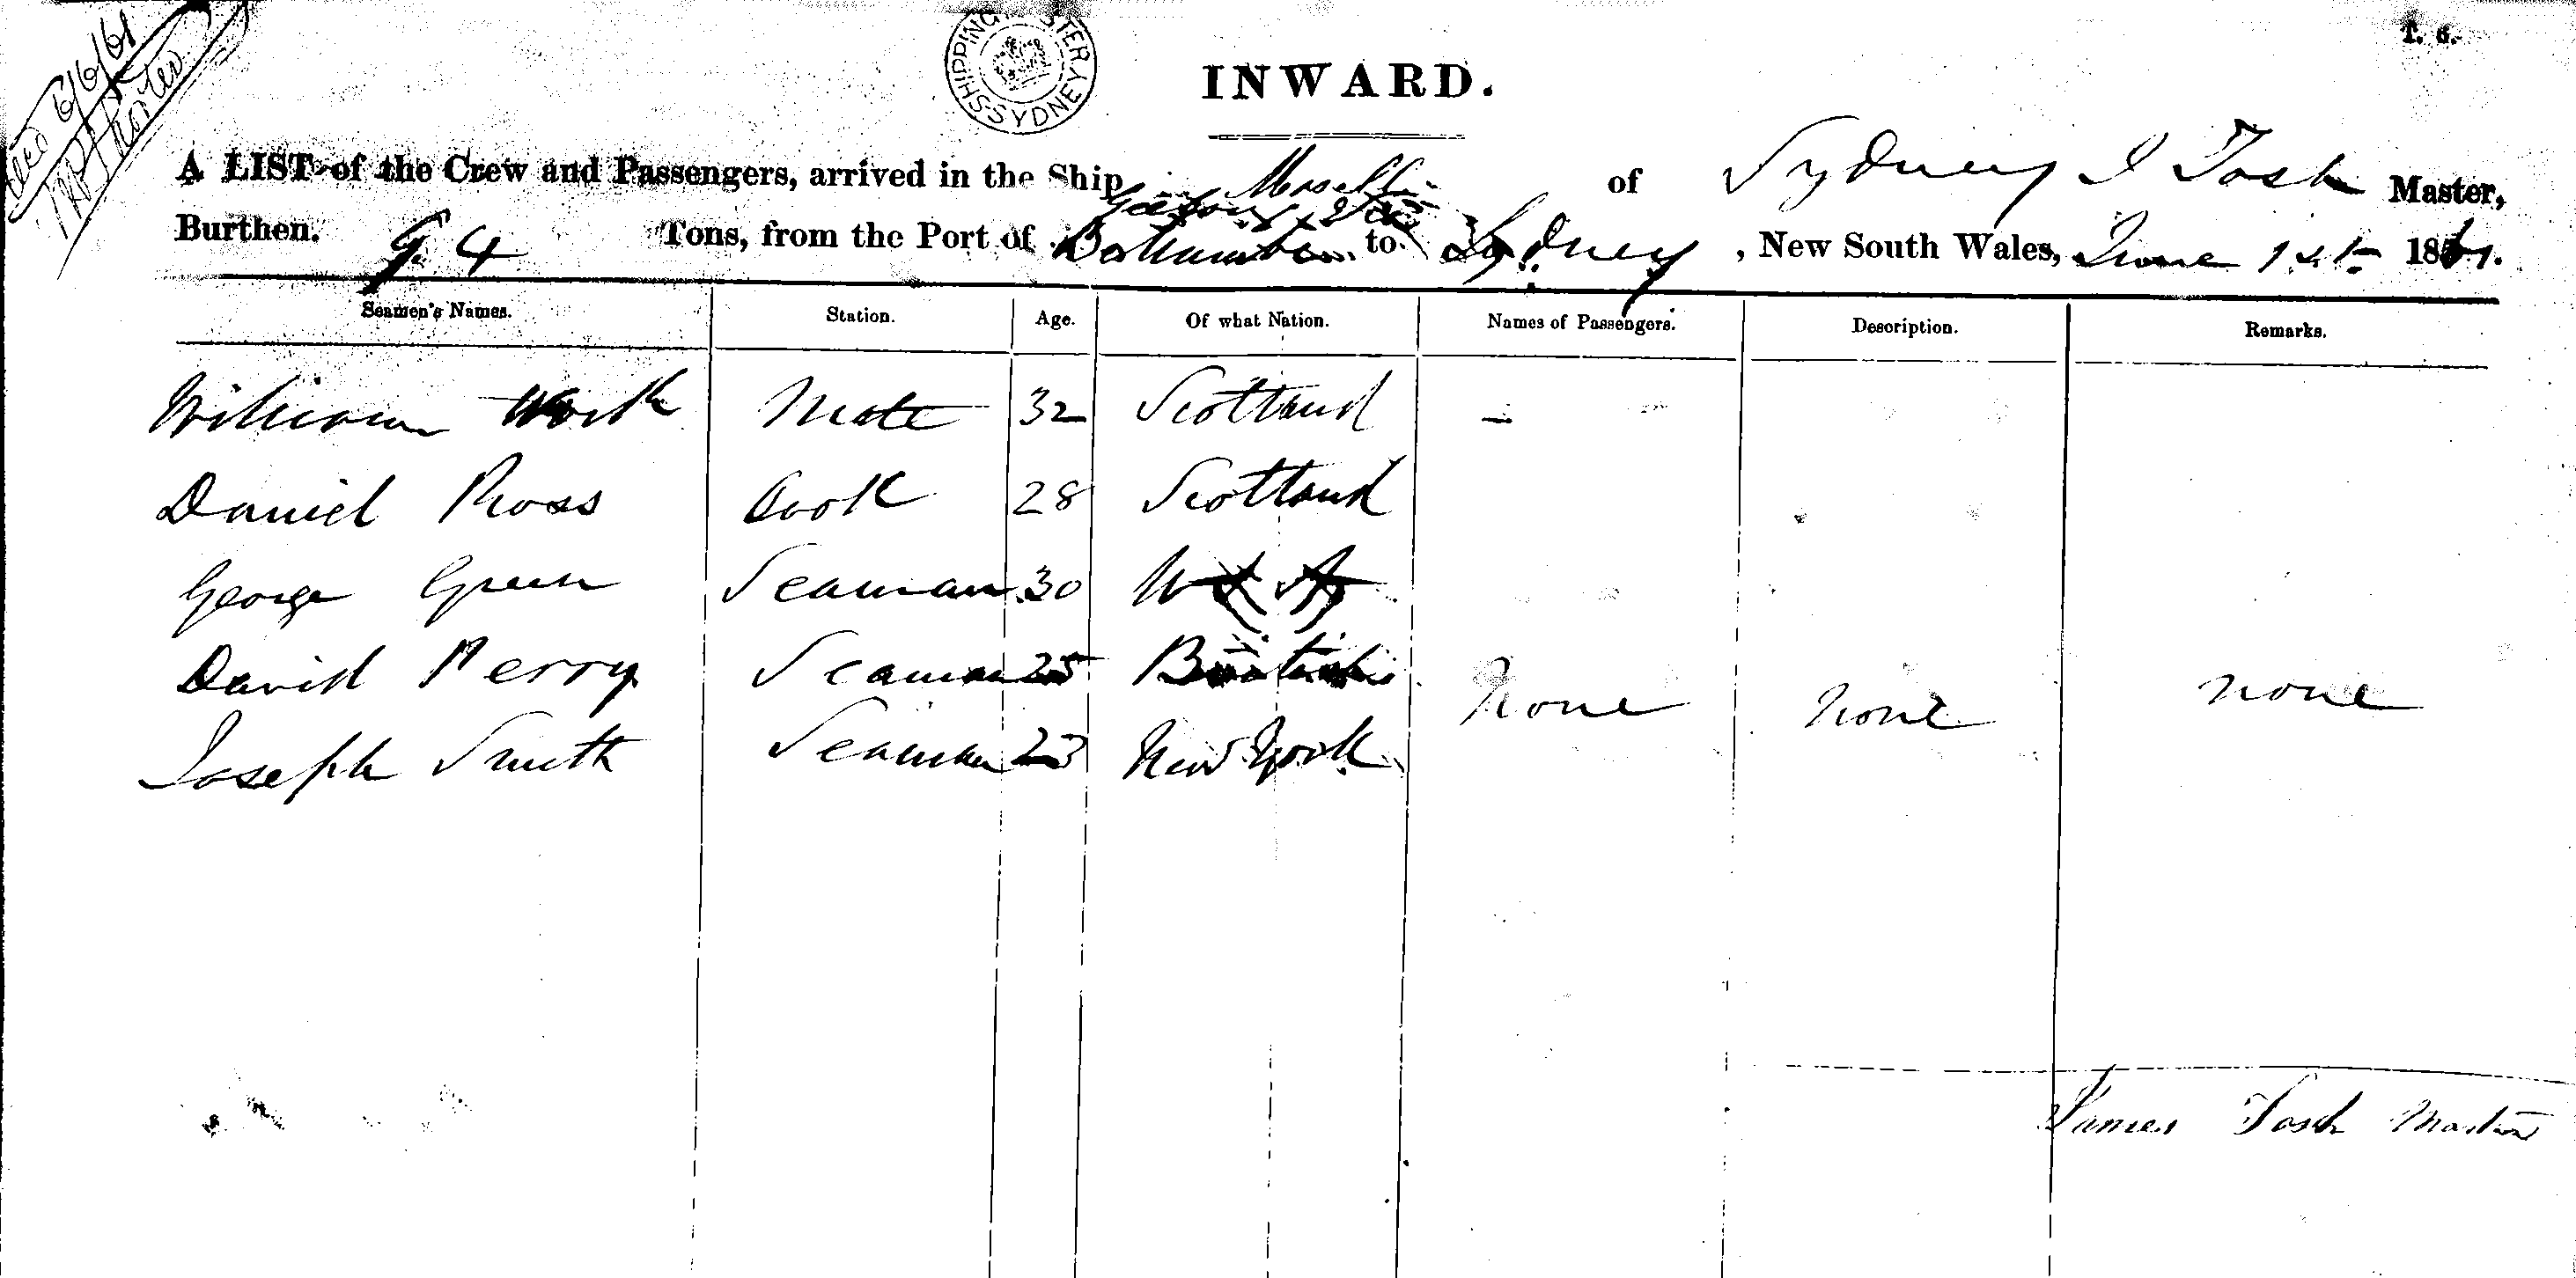 6/6/61
T. 6.
SHIPPING MASTER SYDNEY
INWARD.
A LIST of the Crew and Passengers, arrived in the Ship of Sydney J Tosh Master,
Burthen. 94 Tons, from the Port of to Sydney, New South Wales, June 1st 1861.
Seamen's Names. Station. Age. Of what Nation. Names of Passengers. Description. Remarks.
William Work Mate 32 Scotland -
Daniel Ross Cook 28 Scotland
George Green Seaman 30
David Perry Seaman 25
Joseph Smith Seaman 23 New York
None None None
James Tosh Master